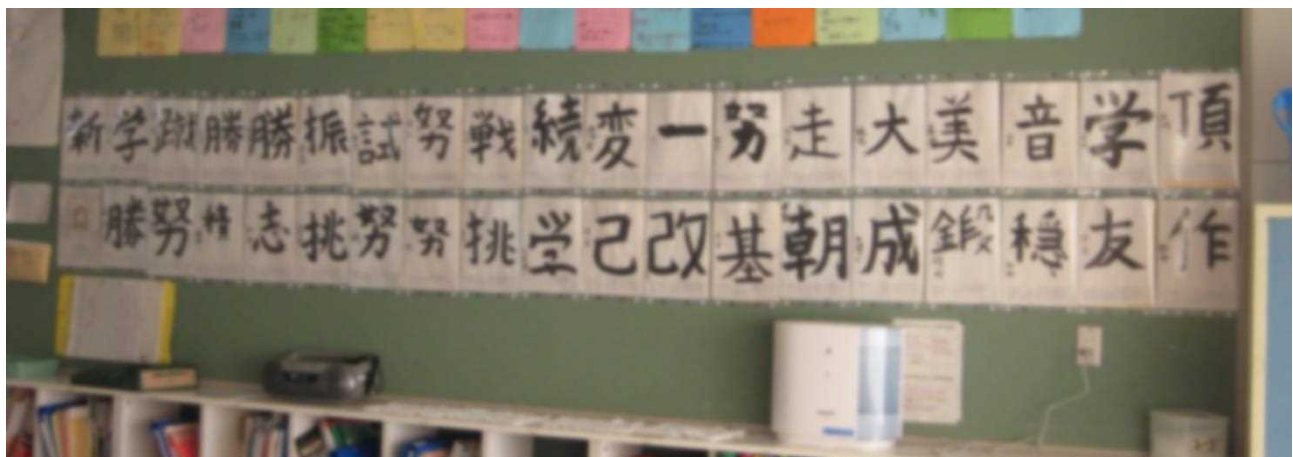 新学蹴勝勝振試努戦続変一努走大美音学頂
勝努精志挑努努挑学己改基朝成鍛穏友作